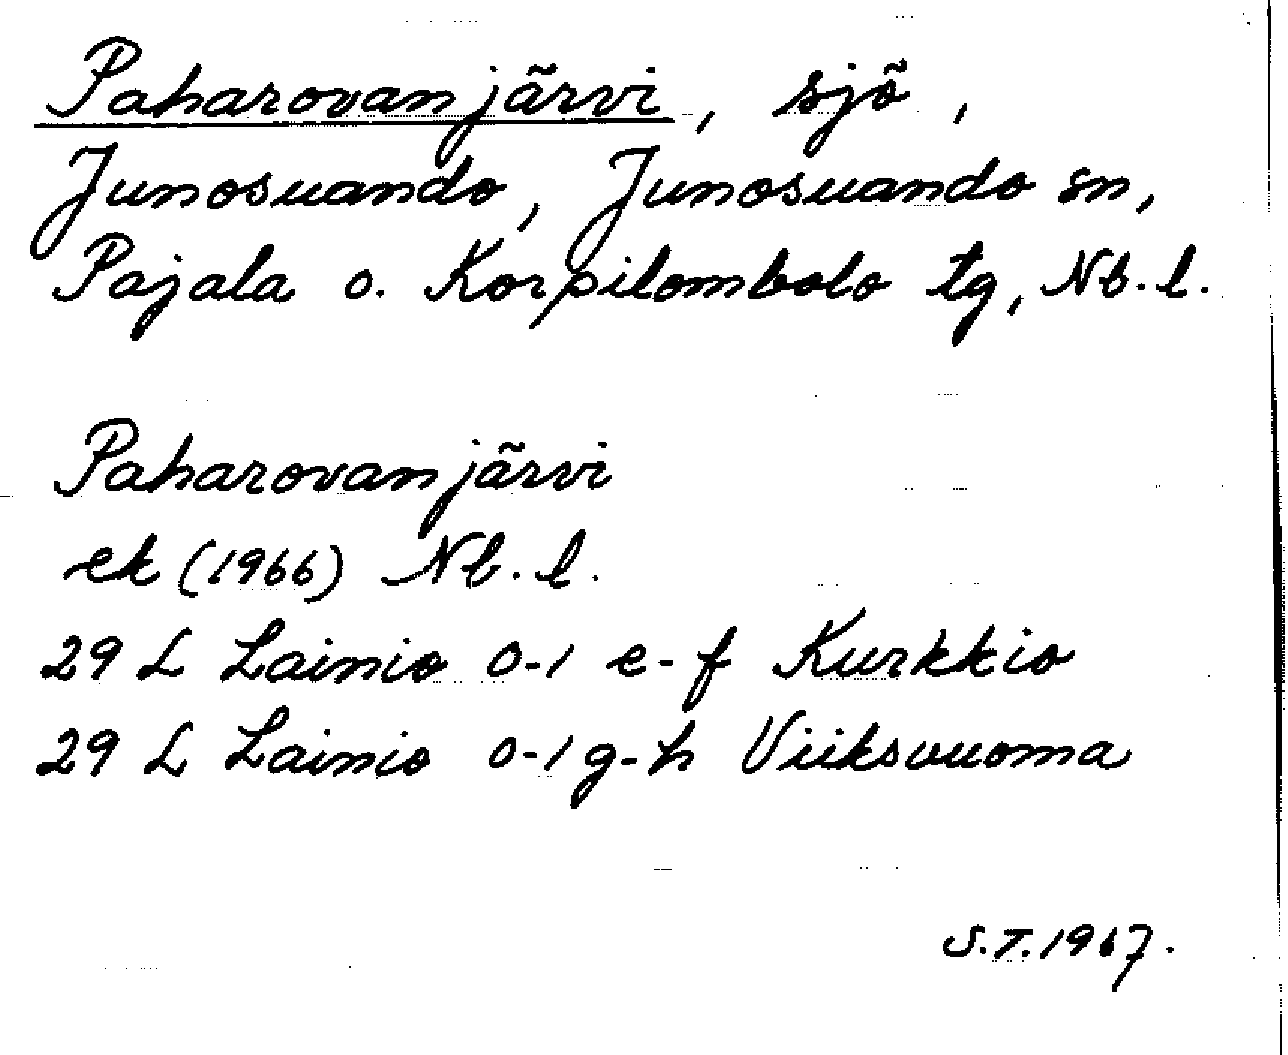 Paharovanjärvi, sjö,
Junosuando, Junosuando sn,
Pajala o. Korpilombolo tg, Nb. l.
Paharovanjärvi
ek (1966) Nb. l.
29 L Lainio 0-1 e-f Kurkkio
29 L Lainio 0-1 g-h Viiksvuoma
S.T. 1967.